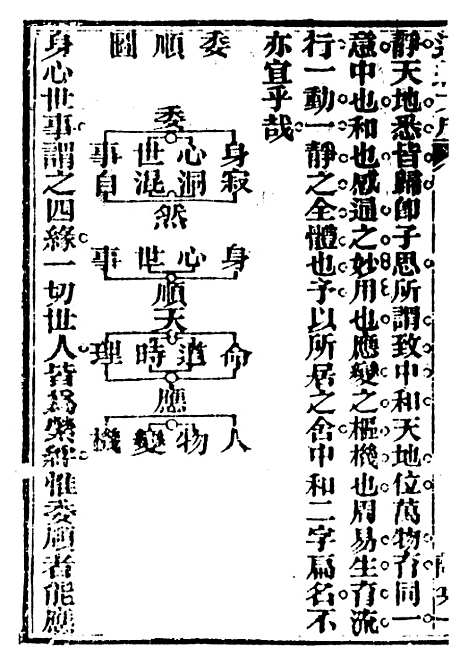 靜天地悉皆歸卽子思所謂致中和天地位萬物有同一
意中也和也感通之妙用也應變之樞機也周易生育流
行一動一靜之全體也予以所居之舍中和二字扁名不
亦宜乎哉
委順圖
委
身心世事
寂洞混自
然
身心世事
順
天
命道時理
應
人物變機
身心世事謂之四緣一切世人皆爲縈絆惟委順者能應